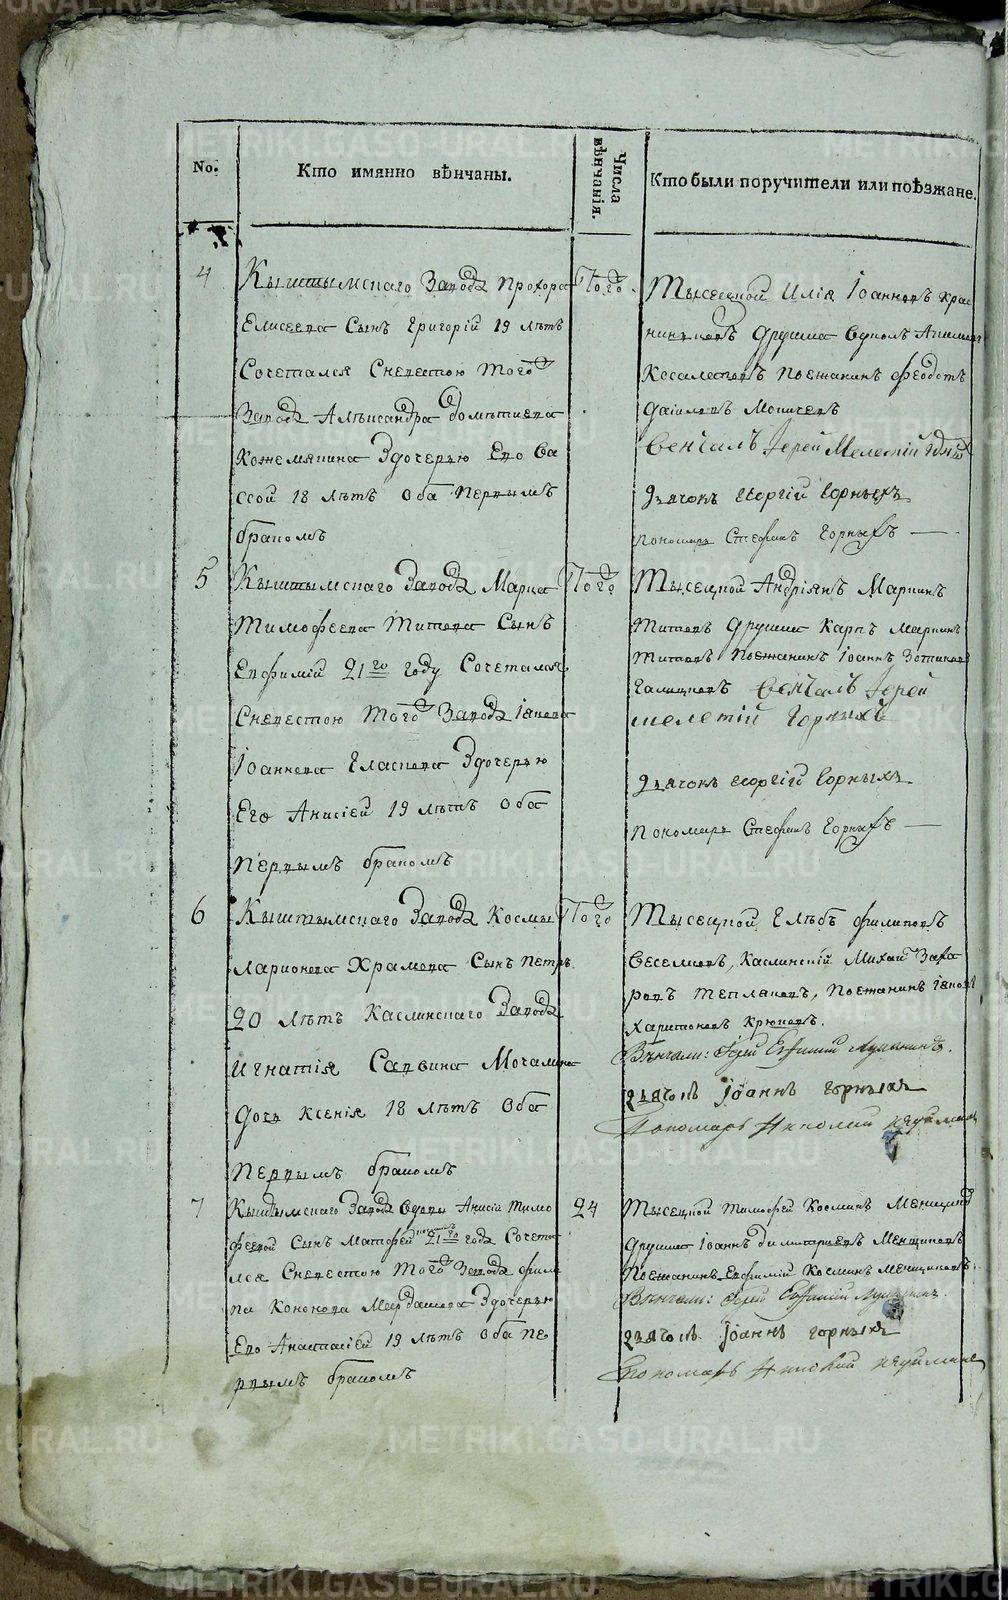 No.
Кто имянно вѣнчаны.
Числа вѣнчанія.
Кто были поручители или поѣзжане.
4
Кыштымскаго Завода Прохора
Елисеева Сынъ Григорій 19 лѣтъ
Сочетался Сневестою того
Завода Алѣксандра
Кожемякина Здочерью Его Ва
ссой 18 лѣтъ Оба Первымъ
бракомъ
Того
Тысецкой Илія Іоанновъ Крас
Дружка
Поежанинъ Феодотъ
Венчалъ Іерей Мелетій
Дьячокъ Георгій Горныхъ
Пономарь Стефанъ Горныхъ
5
Кыштымскаго Завода Марка
Тимофеева Титова Сынъ
Евфимій 21 го году Сочетался
Сневестою Того Завода Іакова
Іоаннова Власова Здочерью
Его Анисіей 19 лѣтъ Оба
Первымъ бракомъ
Того
Тысецкой Андріянъ Маркинъ
Титовъ Дружка Карпъ Маркинъ
Титовъ Поежанинъ Іоаннъ Зотиковъ
Галицковъ Венчалъ Іерей
Мелетій Горныхъ
Дьячокъ Георгій Горныхъ
Пономарь Стефанъ Горныхъ
6
Кыштымскаго Завода Космы
Ларионова Храмова Сынъ Петръ
20 лѣтъ Каслинскаго Завода
Игнатія Саввина Мочалина
Дочь Ксенія 18 лѣтъ Оба
Первымъ бракомъ
Того
Тысецкой Глѣбъ Филиповъ
Веселковъ, Каслинскій Михаил Заха
ровъ Тепляковъ, Поежанинъ Іаковъ
Харитоновъ Крюковъ.
Вѣнчали: Іерей Евфимій
Дьячокъ Іоаннъ Горныхъ
Пономарь Николай
7
Кыштымскаго Завода Вдовы Анисіи Тимо
феевой Сынъ Матфей 21 го года Сочета
лся Сневестою Того Завода Фили
па Кононова Мардашева Здочерью
Его Анастасіей 19 лѣтъ Оба Пе
рвымъ бракомъ
24
Тысецкой Тимофей Косминъ Меншиковъ
Дружка Іоаннъ Димитріевъ Меншиковъ
Поежанинъ Евфимій Косминъ Меншиковъ.
Вѣнчали: Іерей Евфимій
Дьячокъ Іоаннъ Горныхъ
Пономарь Николай
METRIKI.GASO-URAL.RU